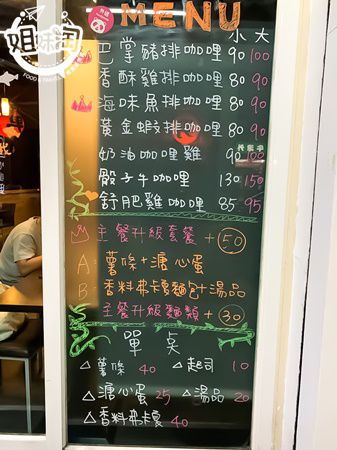 姐妹淘
MENU
小 大
巴掌豬排咖哩 80 100
香酥雞排咖哩 80 90
海味魚排咖哩 80 90
黃金蝦排咖哩 80 90
奶油咖哩雞 90 100
骰子牛咖哩 130 150
舒肥雞咖哩 85 95
主餐升級套餐 + 50
A: 薯條+溏心蛋
B: 香料弗卡夏麵包+湯品
主餐升級麵類 + 30
單点
△薯條 40 △起司 10
△溏心蛋 25 △湯品 20
△香料弗卡夏 40